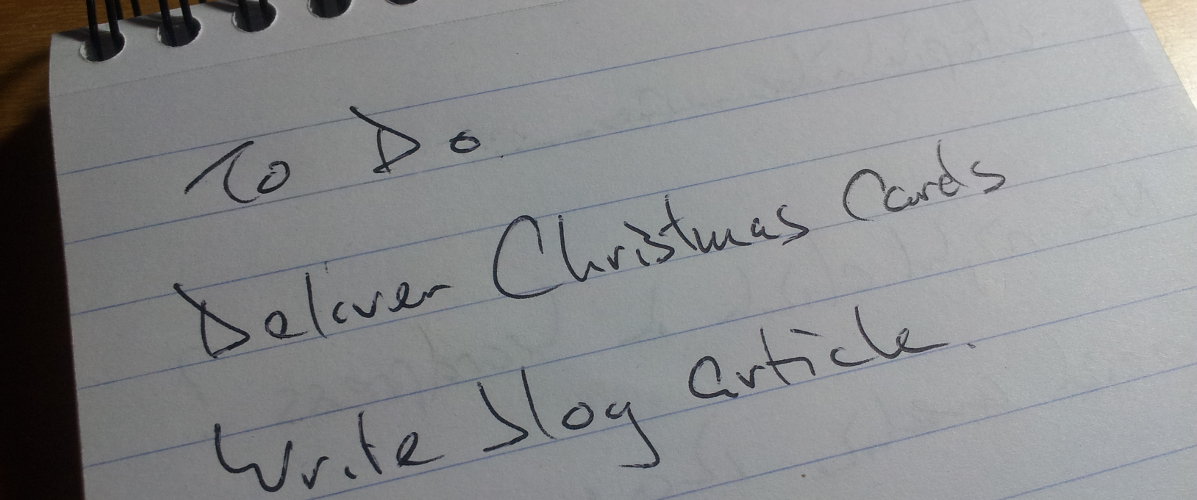 To Do
Deliver Christmas Cards
Write blog article.